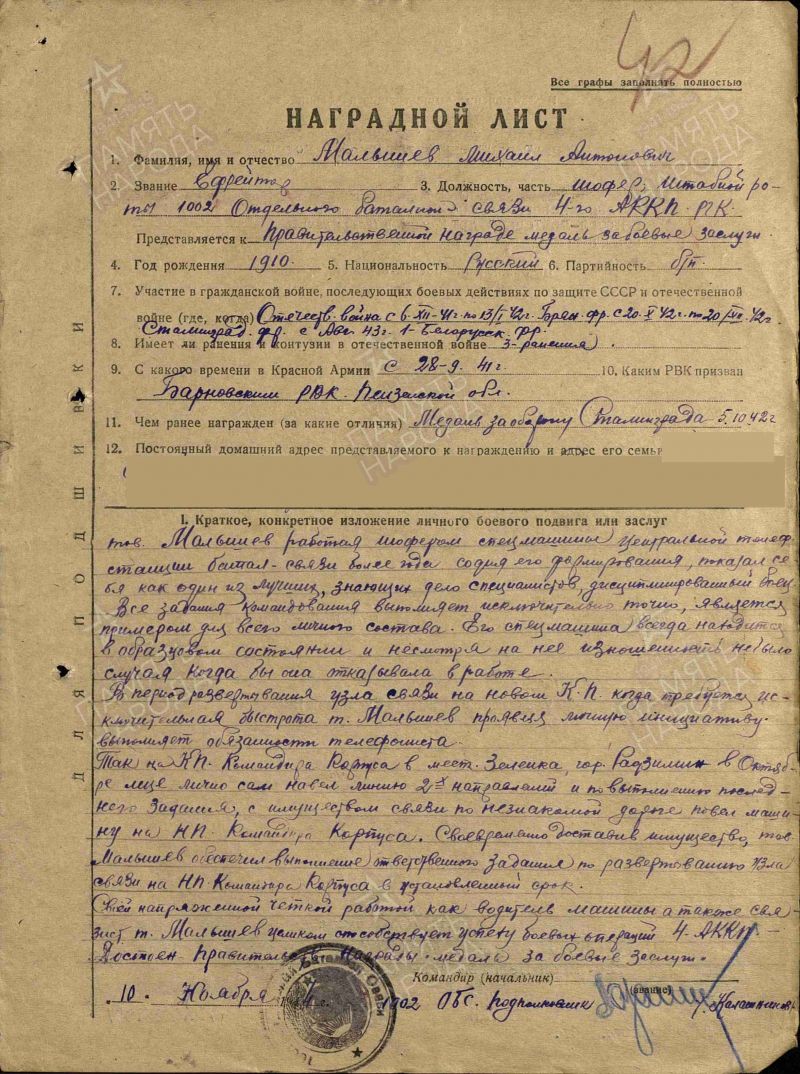 42
Все графы заполнять полностью
НАГРАДНОЙ ЛИСТ
1. Фамилия, имя и отчество Малышев Михаил Антонович
2. Звание Ефрейтор 3. Должность, часть шофер, штабной ро-
ты 1002 Отдельного батальона связи 4-го АРКП. РК.
Представляется к Правительственной награде медаль за боевые заслуги
4. Год рождения 1910. 5. Национальность Русский 6. Партийность б/п.
7. Участие в гражданской войне, последующих боевых действиях по защите СССР и отечественной
войне (где, когда) Отечеств. война с 6-XII-41г. по 13/I 42г. Брян. фр. с 20. X 42г. по 20/ 42г.
Сталинград. фр. с Авг 43г. 1-Белорусск. фр.
8. Имеет ли ранения и контузии в отечественной войне 3-ранения.
9. С какого времени в Красной Армии с 28-9. 41г. 10. Каким РВК призван
РВК. Пензенской обл.
11. Чем ранее награжден (за какие отличия) Медаль за оборону Сталинграда 5.10.42г
12. Постоянный домашний адрес представляемого к награждению и адрес его семьи
I. Краткое, конкретное изложение личного боевого подвига или заслуг
тов. Малышев работая шофером спецмашины центральной телеф.
станции батал-связи более года со дня его формирования, показал се-
бя как один из лучших, знающих дело специалистов, дисциплинированный боец.
Все задания командования выполняет исключительно точно, является
примером для всего личного состава. Его спецмашина всегда находится
в образцовом состоянии и несмотря на нее изношенность не было
случая когда бы она отказывала в работе.
В период развертывания узла связи на новом К.П. когда требуется ис-
ключительная быстрота т. Малышев проявляя личную инициативу.
выполняет обязанности телефониста.
Так на КП. Командира Корпуса в мест. Зеленка, гор. Радзимин в Октяб-
ре м-це лично сам навел линию 2х направлений и по выполнению послед-
него задания, с имуществом связи по незнакомой дороге повел маши-
ну на НП. Командира Корпуса. Своевременно доставив имущество, тов
Малышев обеспечил выполнение ответственного задания по развертыванию узла
связи на НП Командира Корпуса в установленный срок.
Своей напряженной четкой работой как водитель машины а также свя-
зист т. Малышев целиком способствует успеху боевых операций 4-АККП.
Достоин Правительств. Награды-медаль за боевые заслуги.
Командир (начальник)
(звание)
10. Ноября 1002 ОБС. Подполковник /Калашников
ДЛЯ ПОДШИВКИ
ПАМЯТЬ НАРОДА